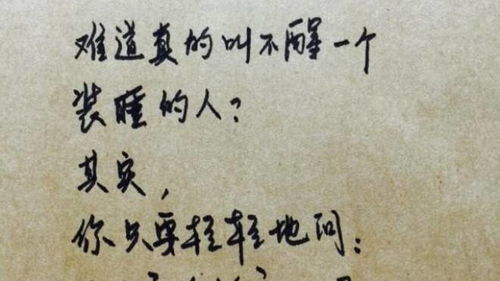 难道真的叫不醒一个
装睡的人？
其实，
你只要轻轻地问：